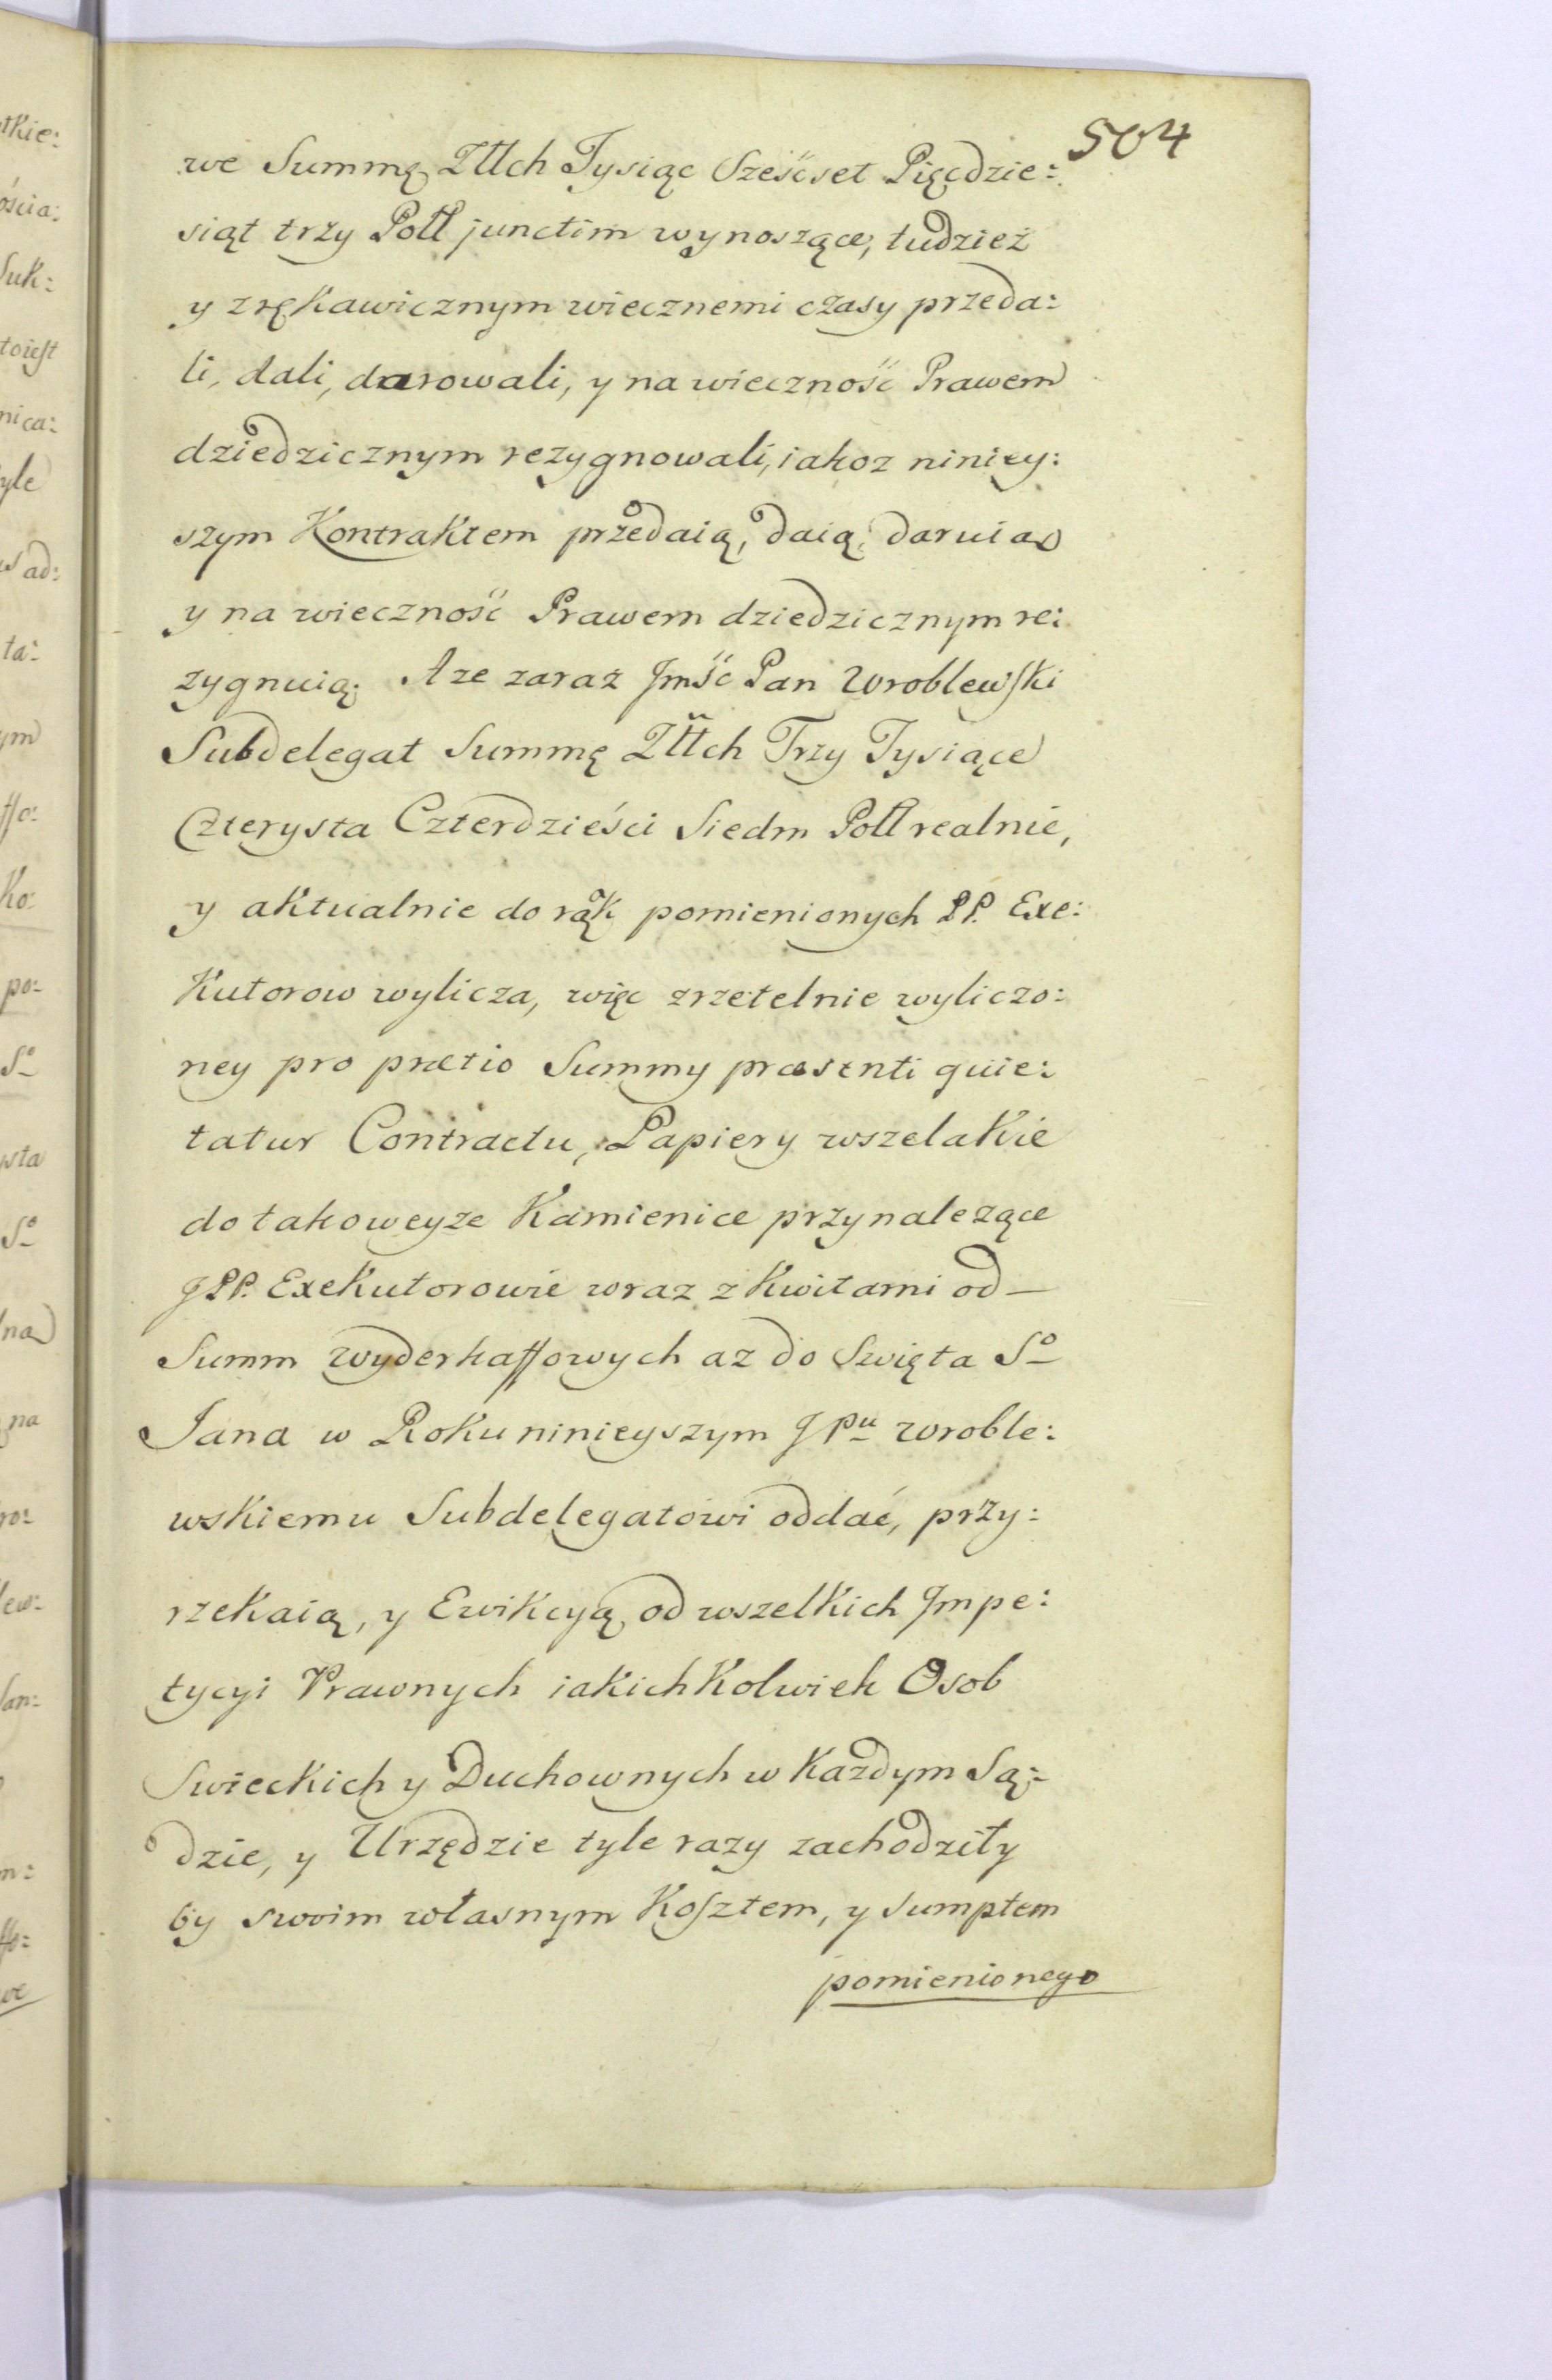 504
we Summę Złłch Tysiąc Sześćset Pięćdzie:
siąt trzy Poll junctim wynoszące, tudzież
y zrękawicznym wiecznemi czasy przeda:
li, dali, darowali, y na wieczność Prawem
dziedzicznym rezygnowali, iakoz niniey:
szym Kontraktem przedaią, daią, daruia
y na wieczność Prawem dziedzicznym re:
zygnuią. A ze zaraz Jmść Pan Wroblewski
Subdelegat Summę Złłch Trzy Tysiące
Czterysta Czterdzieści Siedm Poll realnie,
y aktualnie do rąk pomienionych PP. Exe:
Kutorow wylicza, więc zrzetelnie wyliczo:
ney pro prætio Summy præsenti quie:
tatur Contractu, Papiery wszelakie
do takoweyze Kamienice przynalezące
JPP. Exekutorowie wraz z Kwitami od —
Summ wyderkaffowych az do Swięta Sº
Jana w Roku ninieyszym J Pᵘ Wroble:
wskiemu Subdelegatowi oddać, przy:
rzekaią, y Ewikcyą od wszelkich Jmpe:
tycyi Prawnych iakichkolwiek Osob
Swieckich y Duchownych w Każdym Są:
dzie, y Urzędzie tyle razy zachodziły
by swoim własnym Kosztem, y sumptem
pomienionego
tkie:
ościa:
Suk:
toiest
nica:
tyle
ad:
ta:
ym
ffo:
Ko:
po:
Sº
wsta
Sº
na
na
ro:
lew: